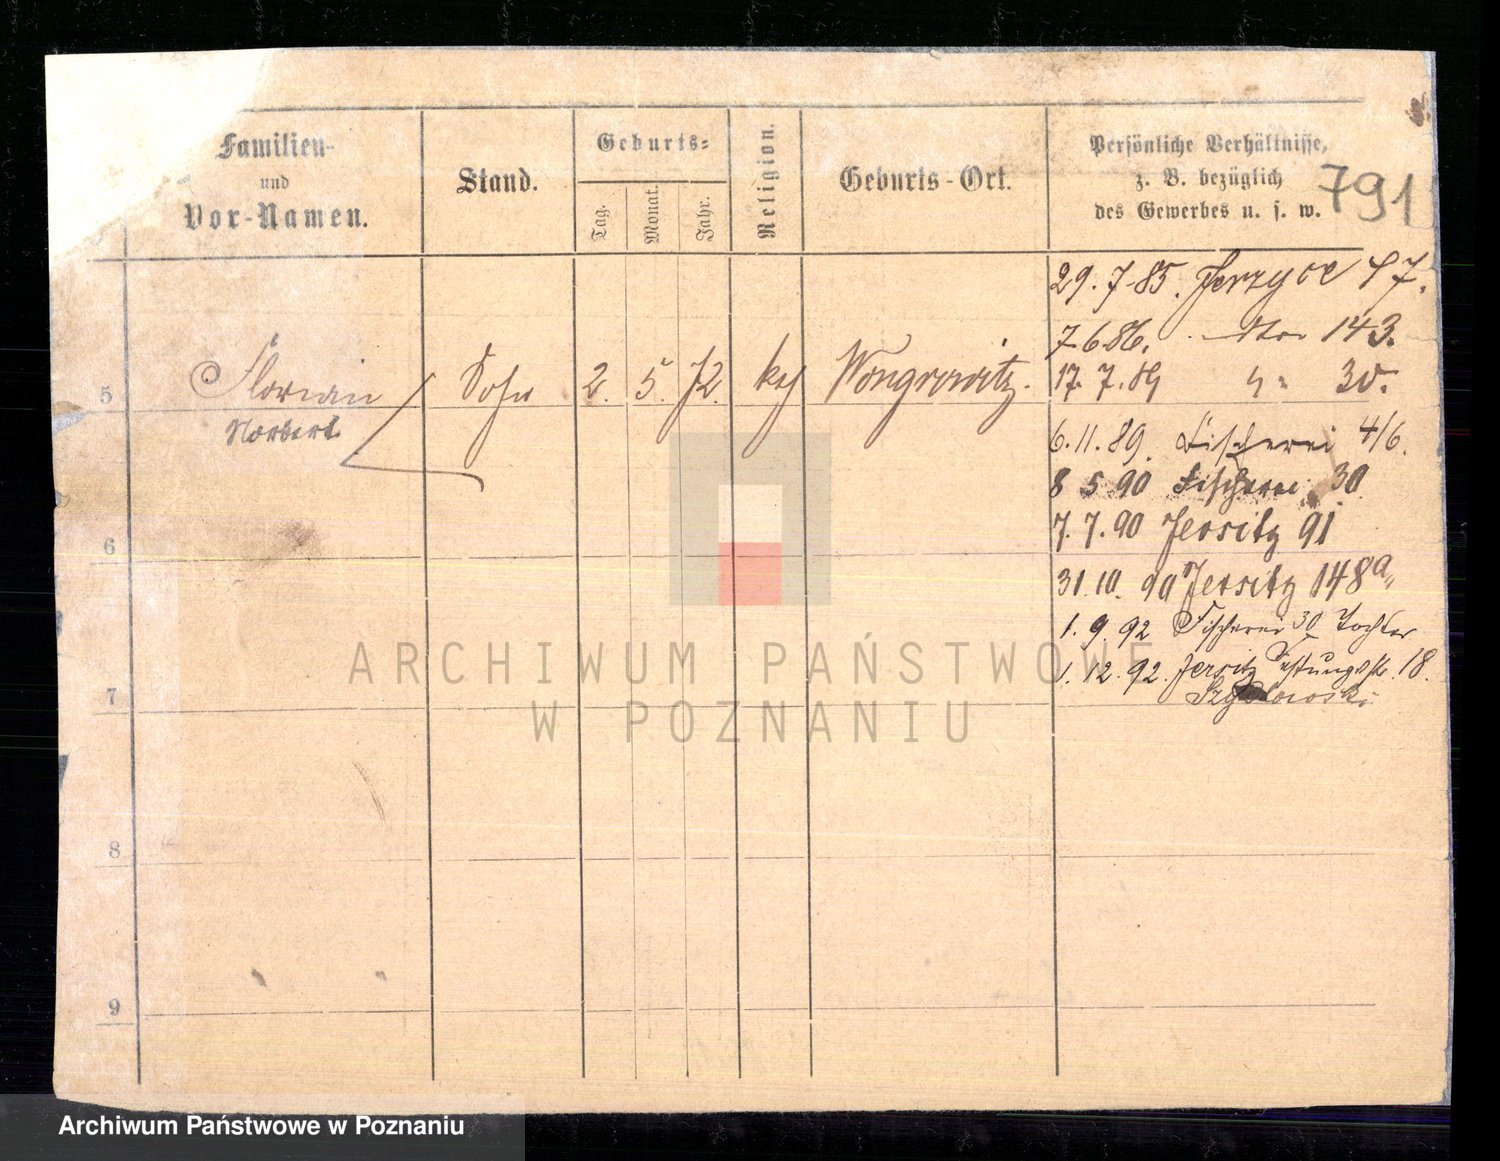 Familien-
und
Vor-Namen.
Stand.
Geburts-
Tag.
Monat.
Jahr.
Religion.
Geburts-Ort.
Persönliche Verhältnisse,
z. B. bezüglich
des Gewerbes u. s. w.
791
5
Florian
Norbert
Sohn
2.
5.
72.
kth
Wongrowitz.
29. 7. 85. Jerzyce 47.
7 6 86. dto 143.
17. 7. 89 " 30.
6. 11. 89. Fischerei 4/6.
8 5 90 Fischerei 30
7. 7. 90 Jersitz 91
31. 10. 90 Jersitz 148a
1. 9. 92 Fischerei 30 Tochter
1. 12. 92. Jersitz 18.
6
7
8
9
ARCHIWUM PAŃSTWOWE
W POZNANIU
Archiwum Państwowe w Poznaniu